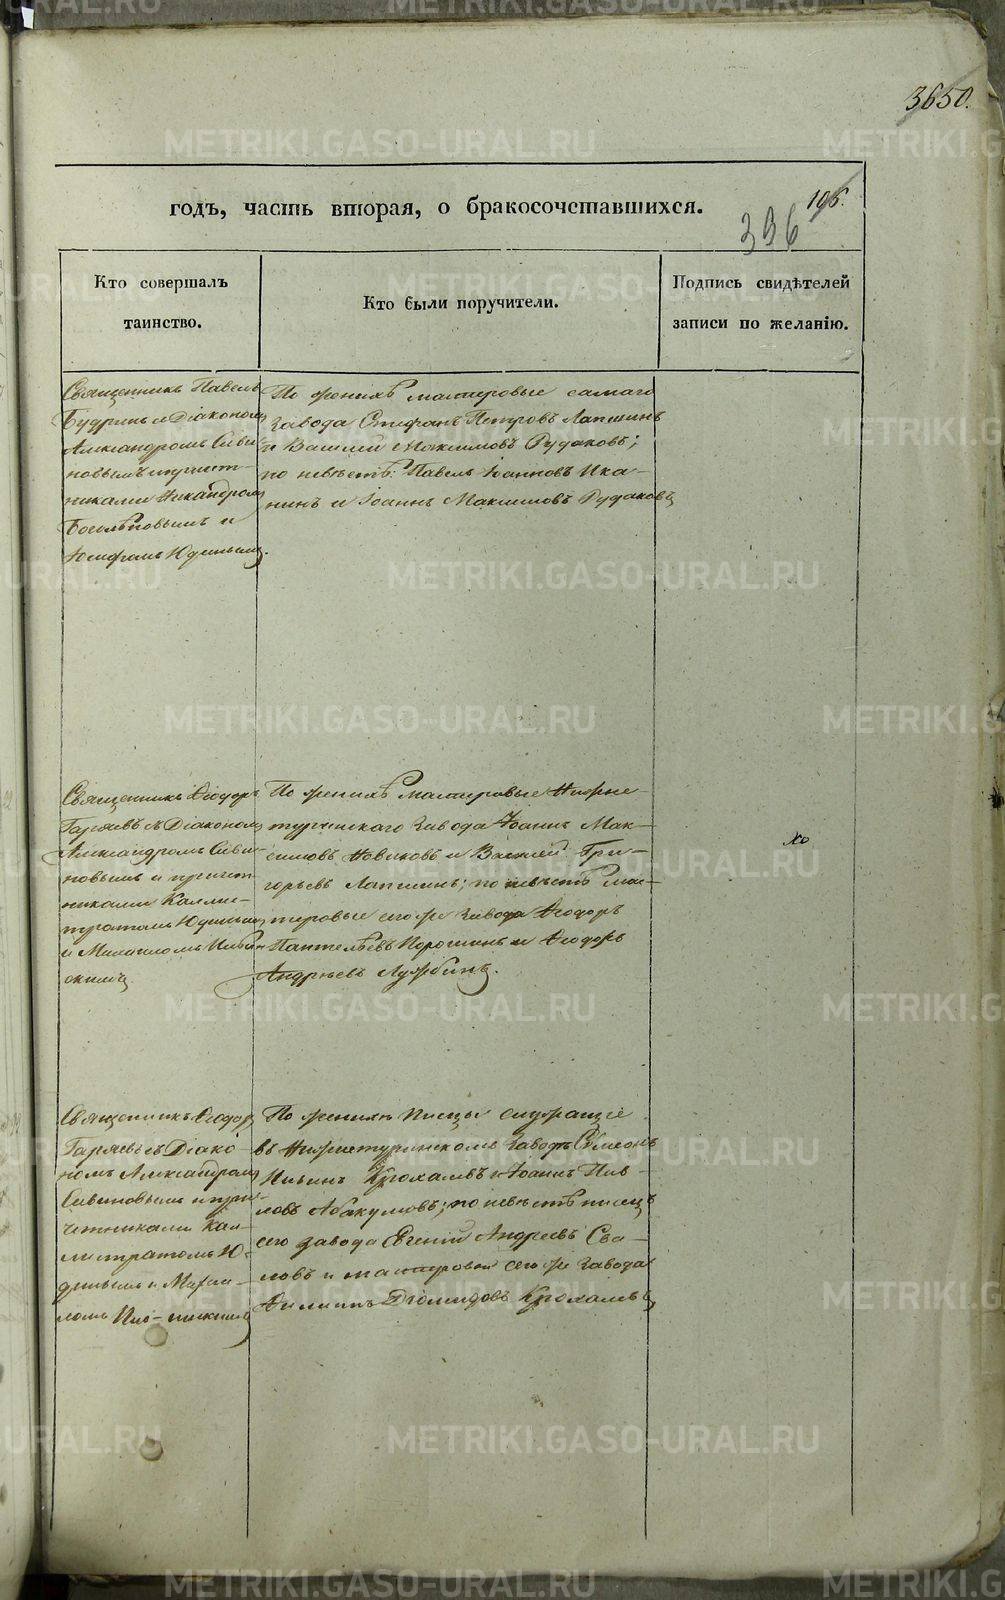 3650.
годъ, часть вторая, о бракосочетавшихся.
105.
396
Кто совершалъ
таинство.
Кто были поручители.
Подпись свидѣтелей
записи по желанію.
Священникъ Павелъ
Будринъ с Діакономъ
Александромъ Сиви-
новымъ и причет-
никами Никандромъ
и
Юдинымъ.
По женихѣ мастеровые самаго
завода Стефанъ Петровъ Лапшинъ
и Василій Максимовъ Рудаковъ;
по невѣстѣ Павелъ Іоанновъ Ика-
нинъ и Іоаннъ Максимовъ Рудаковъ
Священникъ Ѳеодоръ
Гаряевъ съ Діакономъ
Александромъ Сиви-
новымъ и причет-
никами Калли-
стратомъ Юдинымъ
и Михаиломъ
скимъ.
По женихѣ мастеровые Нижне-
туринскаго завода Іоаннъ Мак-
симовъ Новиковъ и Василій Гри-
горьевъ Лапшинъ; по невѣстѣ мас-
теровые сего же завода Ѳеодоръ
Пантелѣевъ Порошинъ и Ѳеодоръ
Андреевъ Лужбинъ.
Священникъ Ѳеодоръ
Гаряевъ съ Діако-
номъ Александромъ
Сивиновымъ и при-
четниками Кал-
листратомъ Ю-
динымъ и Михаи-
ломъ
По женихѣ писцы служащіе
въ Нижнетуринскомъ заводѣ Симеонъ
Ильинъ Крохалевъ и Іоаннъ Пав-
ловъ Абакумовъ; по невѣстѣ писецъ
сего завода Евгеній Андреевъ Сва-
ловъ и мастеровой сего же завода
Филиппъ Діомидовъ Крохалевъ
METRIKI.GASO-URAL.RU